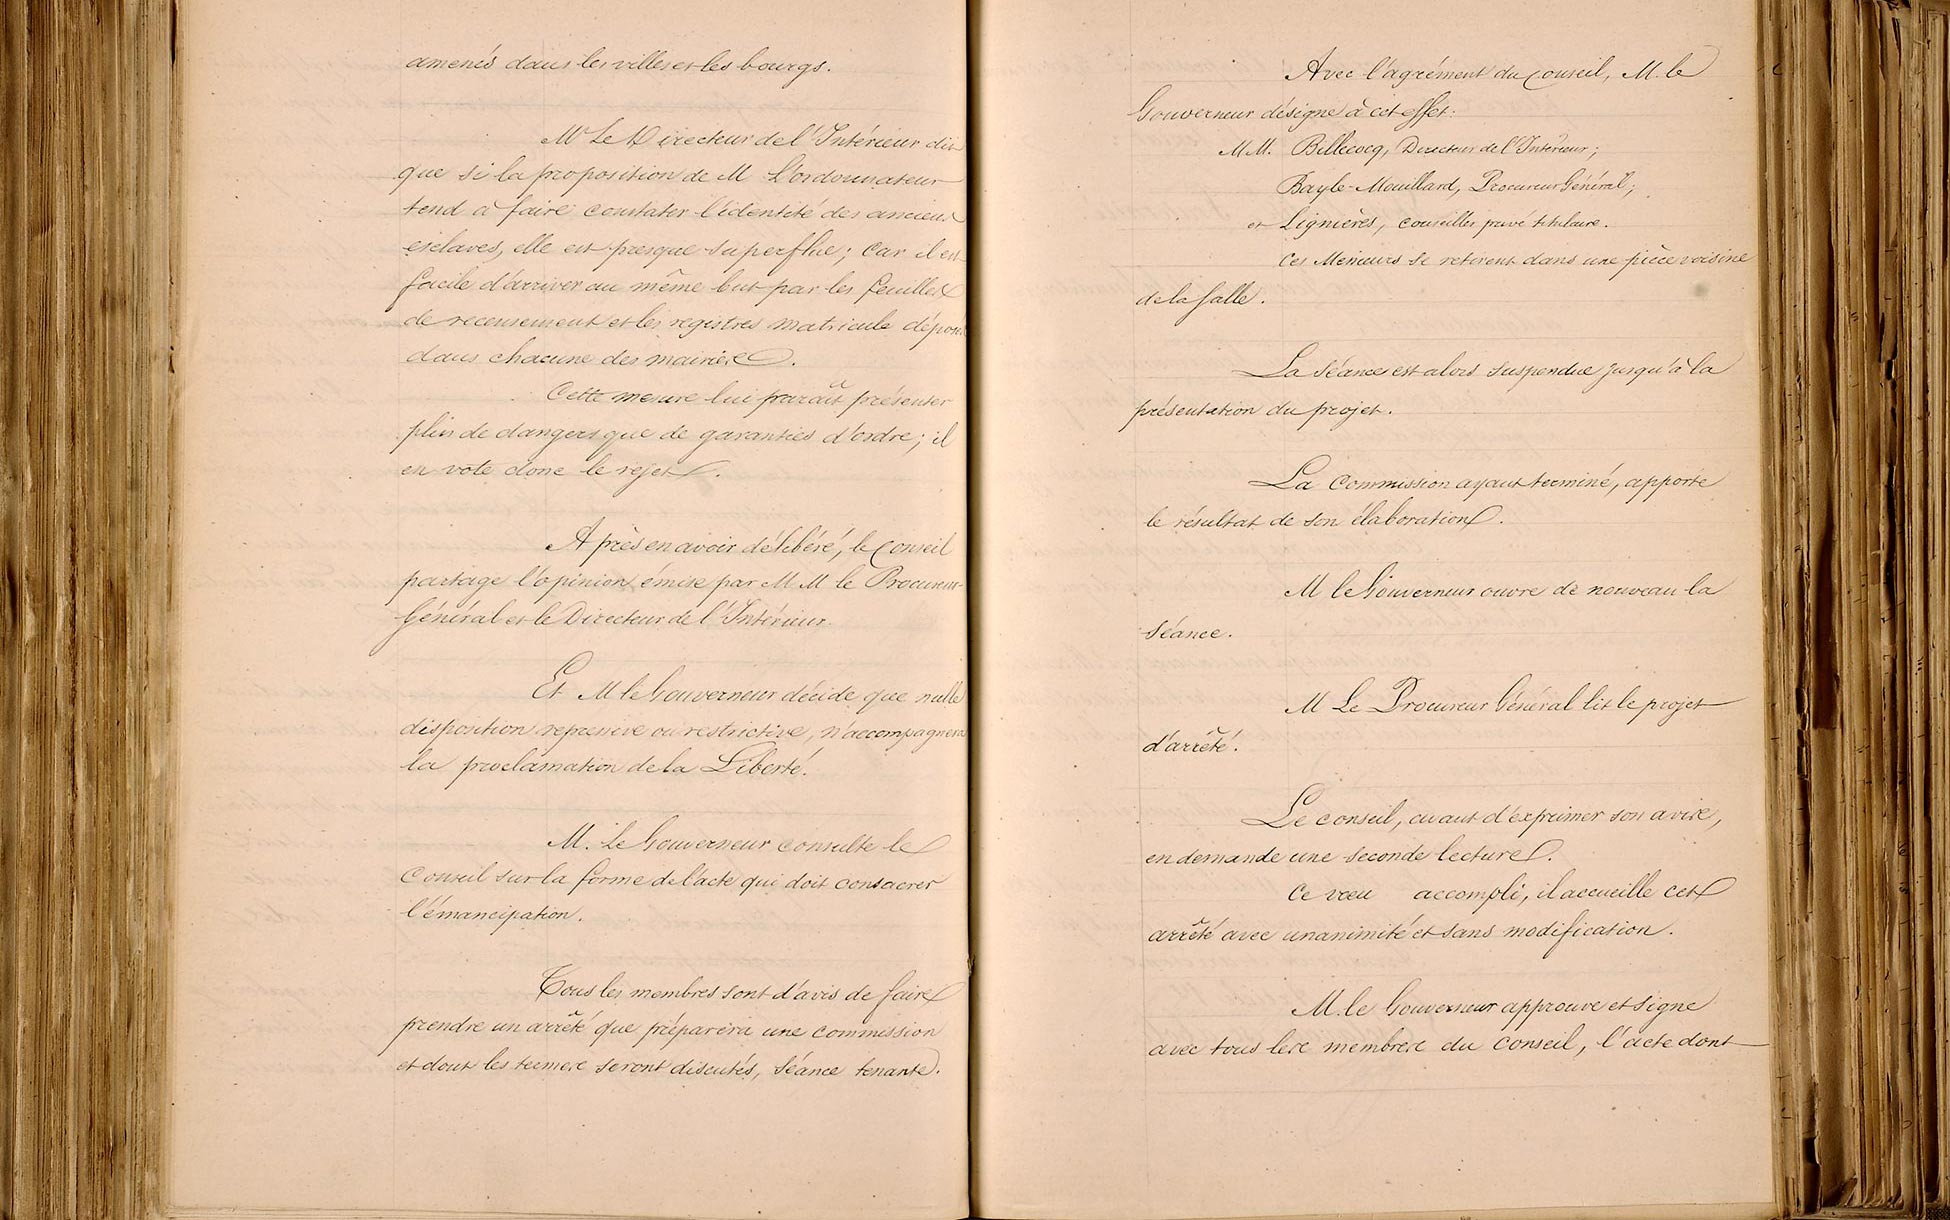 amenés dans les villes et les bourgs.
M Le Directeur de l'Intérieur dit
que si la proposition de M L'ordonnateur
tend à faire constater l'identité des anciens
esclaves, elle est presque superflue; car il est
facile d'arriver au même but par les feuilles
de recensement et les registres matricule déposés
dans chacune des mairies.
Cette mesure lui paraît présenter
plus de dangers que de garanties d'ordre; il
en vote donc le rejet.
Après en avoir délibéré, le Conseil
partage l'opinion émise par M M le Procureur
Général et le Directeur de l'Intérieur.
Et M le Gouverneur décide que nulle
disposition repressive ou restrictive, n'accompagnera
la proclamation de la Liberté.
M. Le Gouverneur consulte le
Conseil sur la forme de l'acte qui doit consacrer
l'émancipation.
Tous les membres sont d'avis de faire
prendre un arrêté que préparera une commission
et dont les termes seront discutés, séance tenante.
Avec l'agrément du Conseil, M. le
Gouverneur désigne à cet effet:
M M. Billecocq, Directeur de l'Intérieur;
Bayle-Mouillard, Procureur Général;
et Lignières, conseiller privé titulaire.
Ces Messieurs se retirent dans une pièce voisine
de la salle.
La Séance est alors suspendue jusqu'à la
présentation du projet.
La Commission ayant terminé, apporte
le résultat de son élaboration.
M le Gouverneur ouvre de nouveau la
séance.
M Le Procureur Général lit le projet
d'arrêté.
Le conseil, avant d'exprimer son avis,
en demande une seconde lecture.
Ce vœu accompli, il accueille cet
arrêté avec unanimité et sans modification.
M. le Gouverneur approuve et signe
avec tous les membres du Conseil, l'acte dont